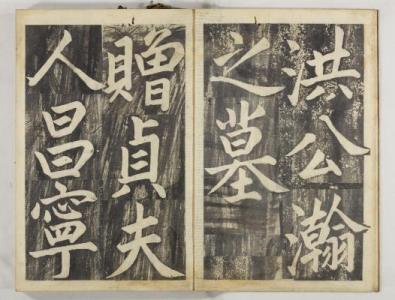 洪公瀚
之墓
贈貞夫
人昌寧